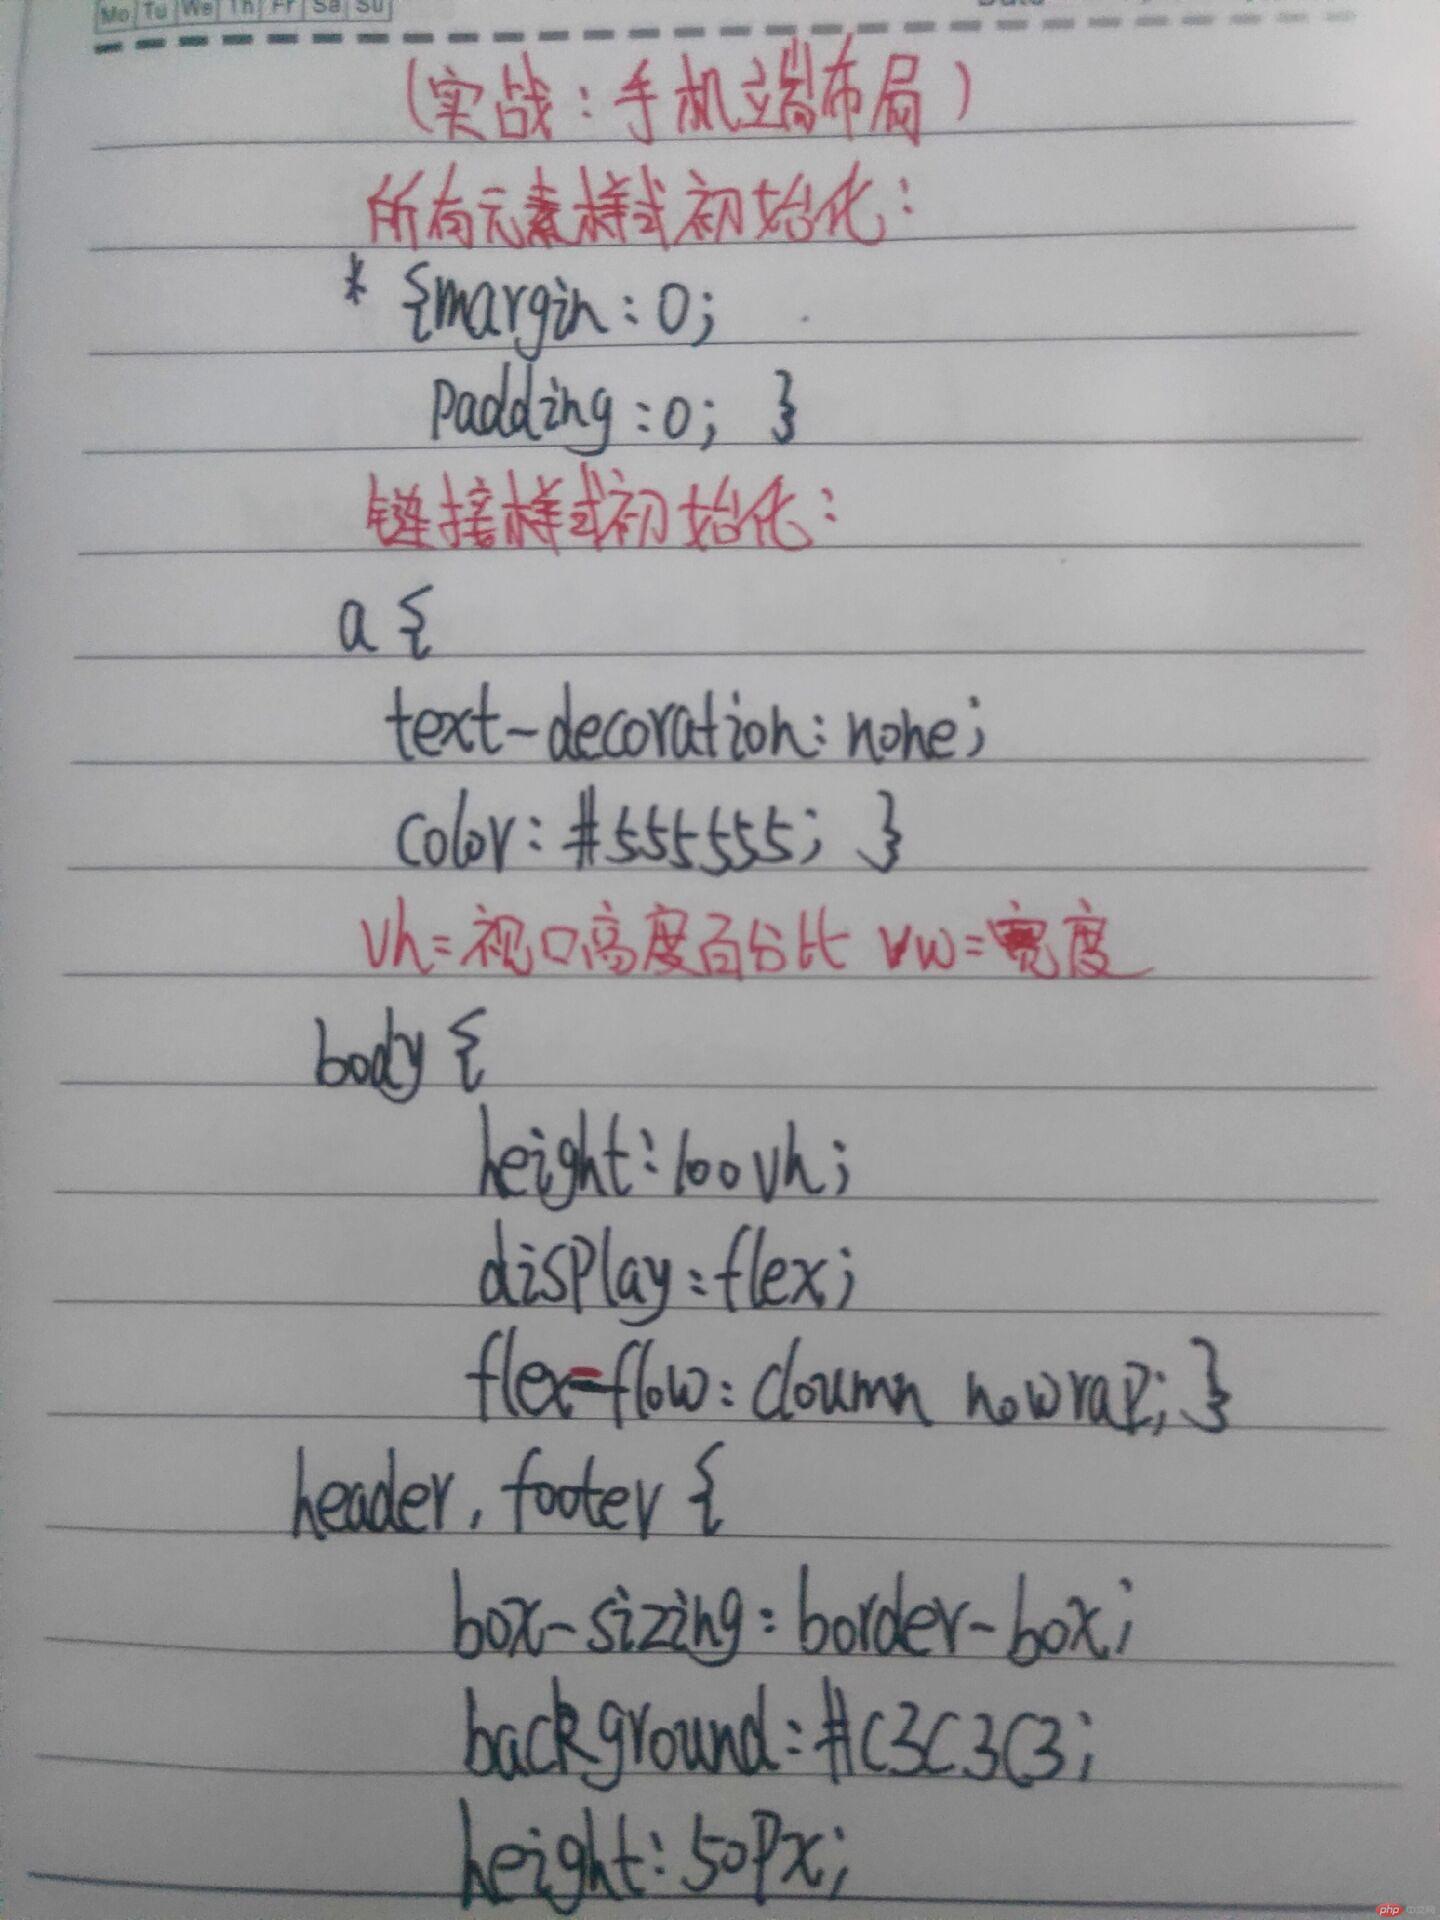 Mo Tu We Th Fr Sa Su
(实战:手机端布局)
所有元素样式初始化:
* {margin:0;
padding:0; }
链接样式初始化:
a {
text-decoration:none;
color:#555555; }
vh=视口高度百分比 vw=宽度
body {
height:100vh;
display:flex;
flex-flow:cloumn nowrap; }
header, footer {
box-sizing:border-box;
background:#C3C3C3;
height:50px;
php 中文网